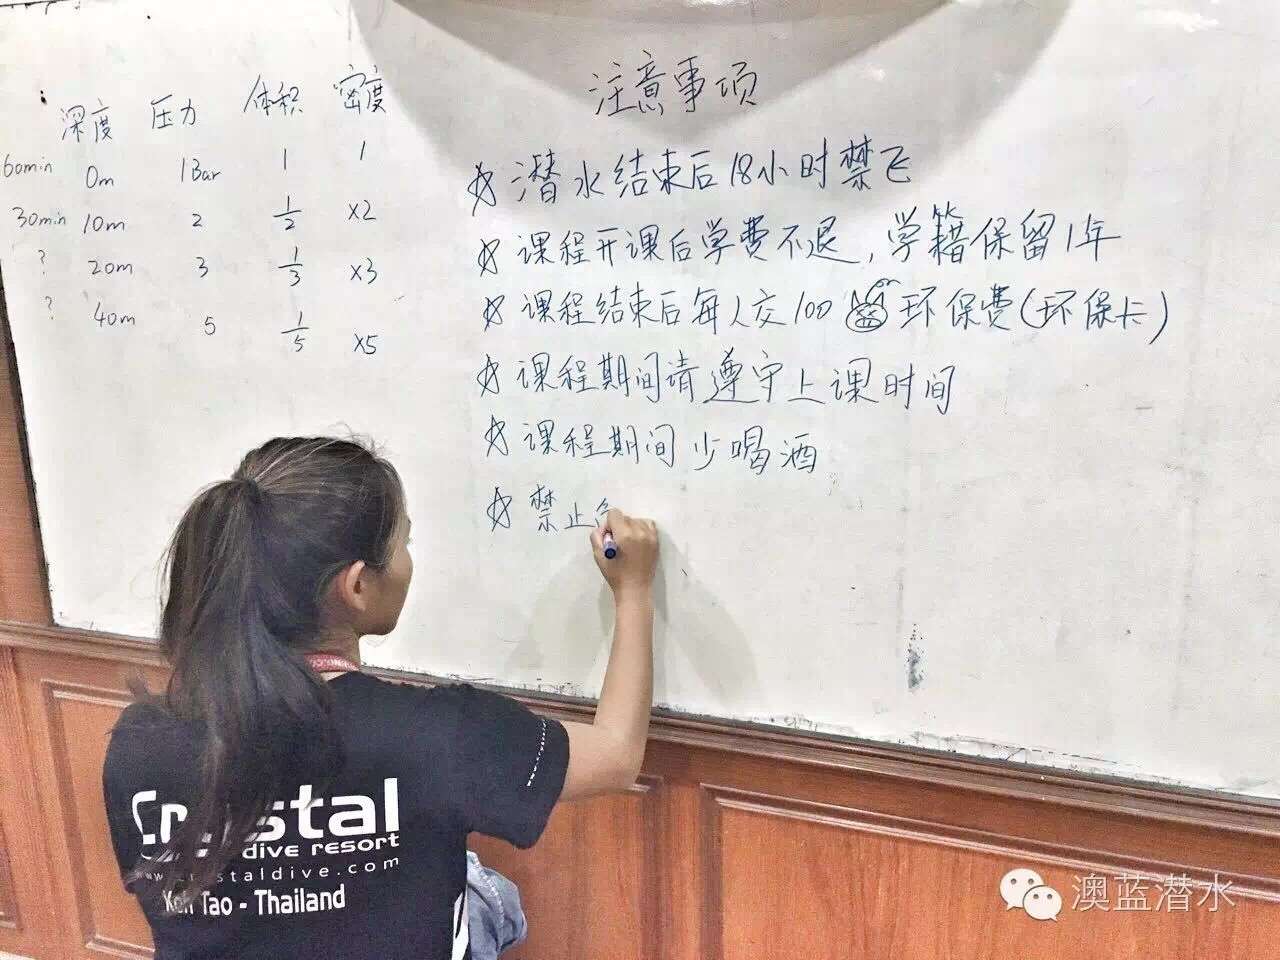 深度 压力 体积 密度
60min 0m 1Bar 1 1
30min 10m 2 1/2 x2
? 20m 3 1/3 x3
? 40m 5 1/5 x5
注意事项
☆ 潜水结束后18小时禁飞
☆ 课程开课后学费不退,学籍保留1年
☆ 课程结束后每人交100 环保费(环保卡)
☆ 课程期间请遵守上课时间
☆ 课程期间少喝酒
☆ 禁止
Crystal
dive resort
www.crystaldive.com
Koh Tao - Thailand
澳蓝潜水